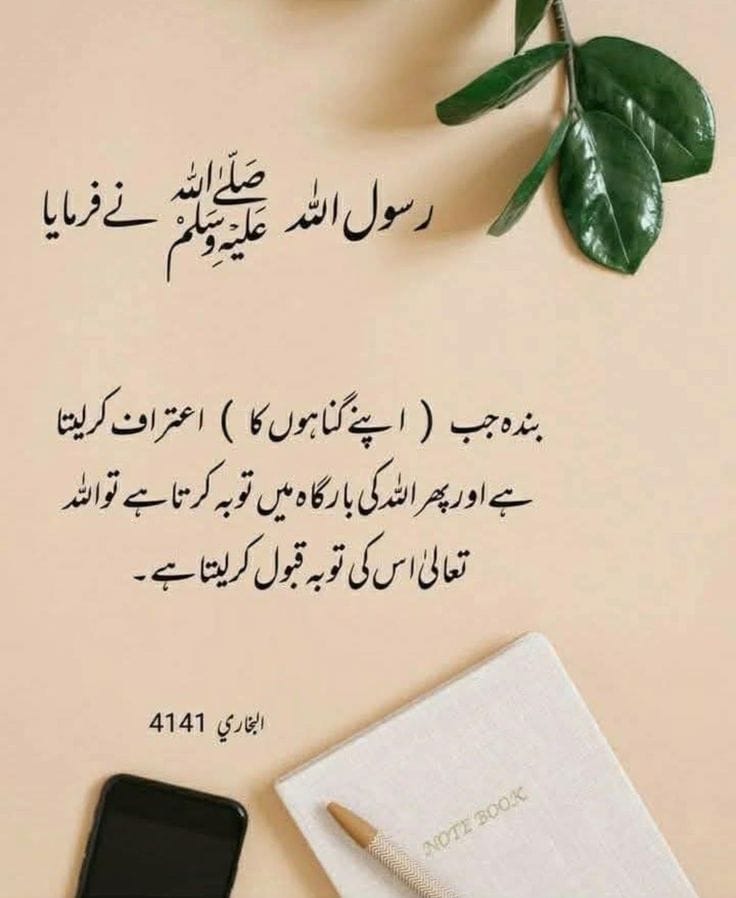 رسول اللہ صَلَّى اللّٰهُ عَلَيْهِ وَسَلَّمَ نے فرمایا
بندہ جب ( اپنے گناہوں کا ) اعتراف کرلیتا
ہے اور پھر اللہ کی بارگاہ میں توبہ کرتا ہے تو اللہ
تعالیٰ اس کی توبہ قبول کرلیتا ہے۔
البخاري 4141
NOTE BOOK